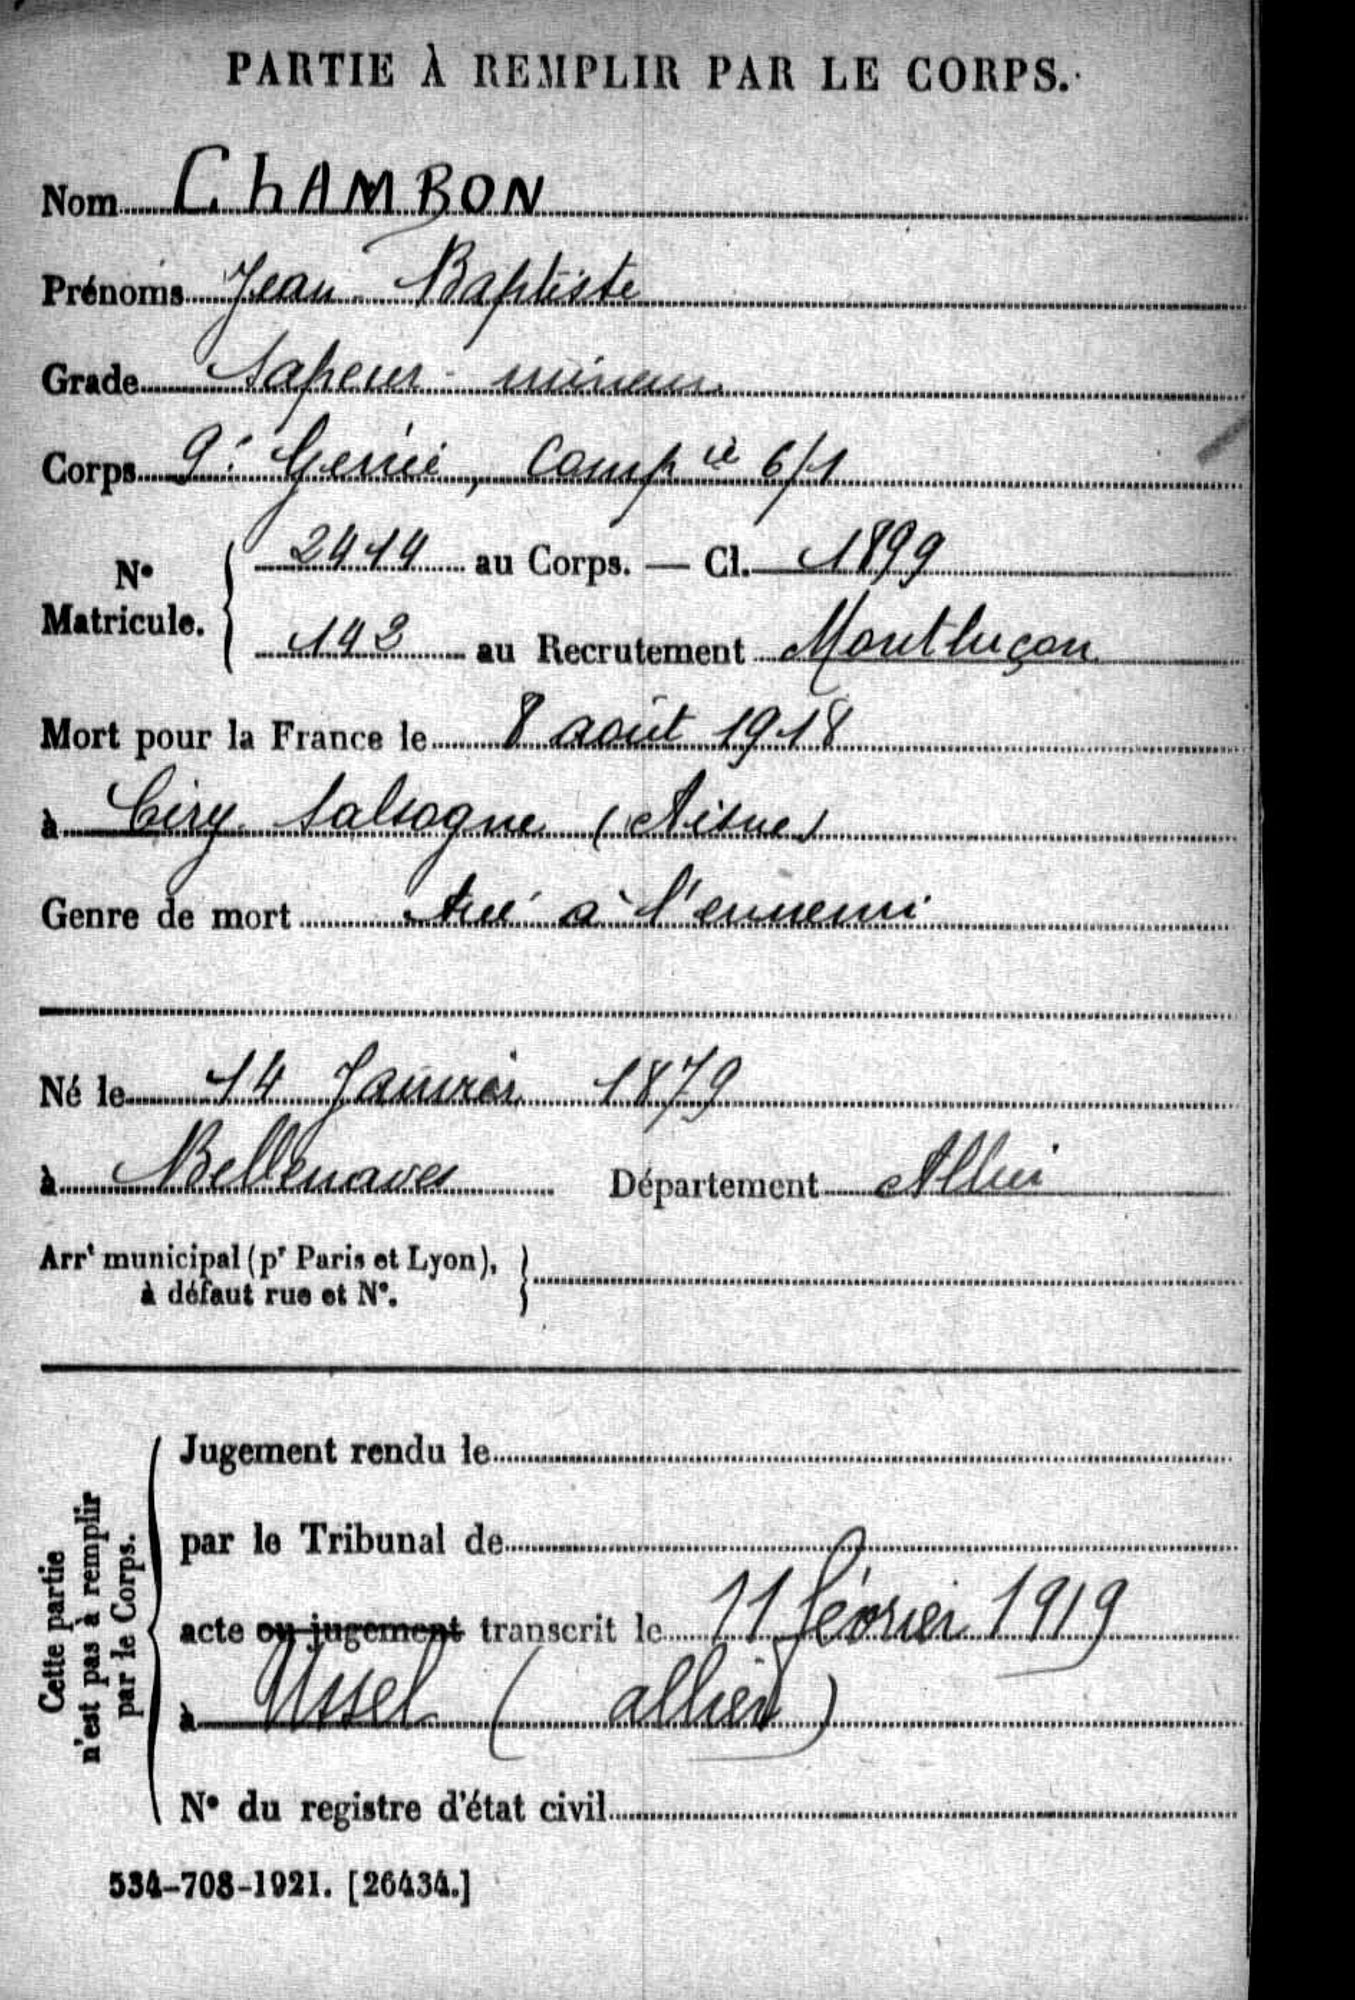 PARTIE À REMPLIR PAR LE CORPS.
Nom ChAMBON
Prénoms Jean Baptiste
Grade Sapeur-mineur
Corps 9e Génie, Compie 6/1
N° Matricule. 2414 au Corps. — Cl. 1899
142 au Recrutement Montluçon
Mort pour la France le 8 août 1918
à Ciry Salsogne (Aisne)
Genre de mort tué à l'ennemi
Né le 14 Janvier 1879
à Bellenaves Département Allier
Arrt municipal (pr Paris et Lyon),
à défaut rue et N°.
Cette partie
n'est pas à remplir
par le Corps.
Jugement rendu le
par le Tribunal de
acte ou jugement transcrit le 11 février 1919
à Ussel (allier)
N° du registre d'état civil
534-708-1921. [26434.]